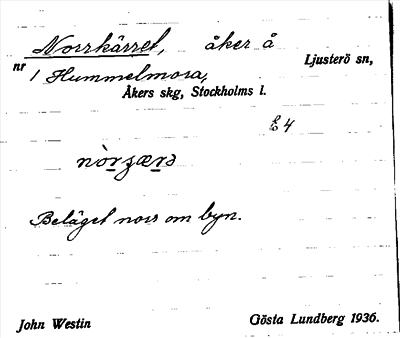 Norrkärret, åker å
Ljusterö sn,
nr 1 Hummelmora,
Åkers skg, Stockholms l.
E 4
Beläget norr om byn.
John Westin
Gösta Lundberg 1936.